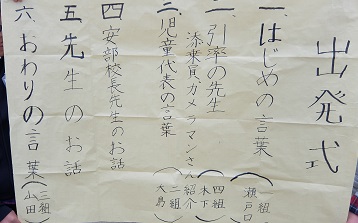 出発式
一、はじめの言葉
（一組
瀬戸口
二、引率の先生
添乗員、カメラマンさん紹介
（四組
木下）
三、児童代表の言葉
（二組
大島）
四 安部校長先生のお話
五 先生のお話
六、おわりの言葉
（三組
山田）